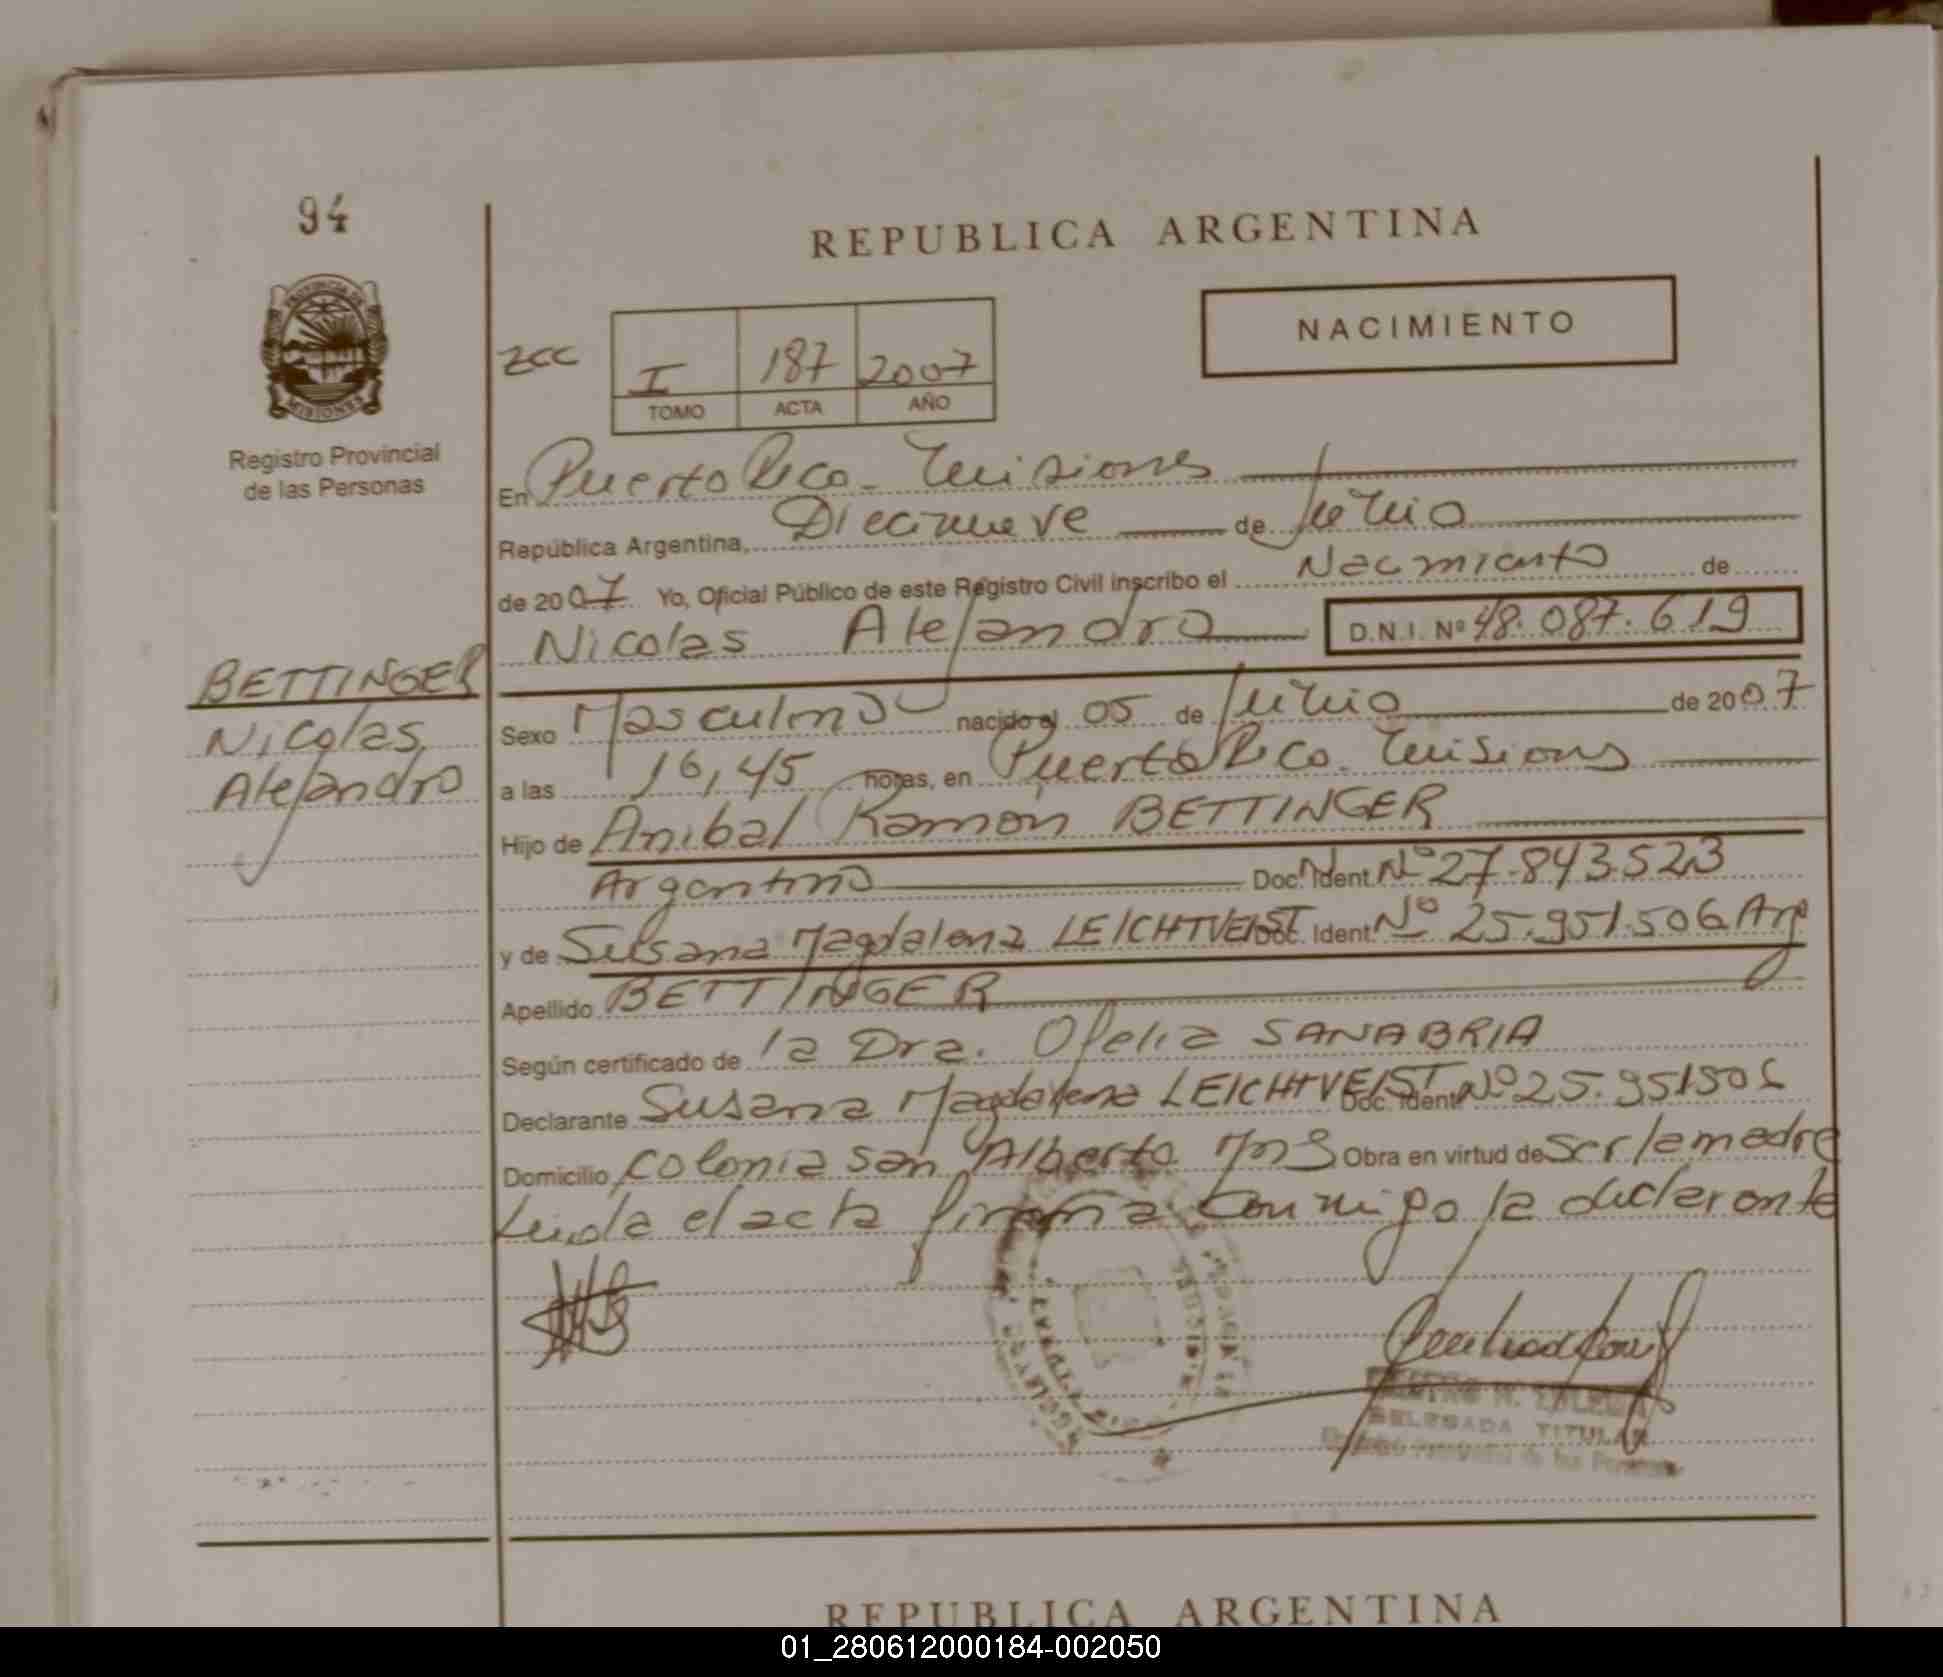 94
REPUBLICA ARGENTINA
PROVINCIA DE
MISIONES
Registro Provincial
de las Personas
NACIMIENTO
I 187 2007
TOMO ACTA AÑO
En Puerto Rico - Misiones
República Argentina, Diecinueve de Junio
de 2007 Yo, Oficial Público de este Registro Civil inscribo el Nacimiento de
Nicolas Alejandro D.N.I. Nº 48.087.619
BETTINGER
Nicolas
Alejandro
Sexo Masculino nacido el 05 de Junio de 2007
a las 16,45 horas, en Puerto Rico - Misiones
Hijo de Anibal Ramón BETTINGER
Argentino Doc. Ident. Nº 27.843.523
y de Susana Magdalena LEICHTVEIST Doc. Ident. Nº 25.951.506 Arg
Apellido BETTINGER
Según certificado de la Dra. Ofelia SANABRIA
Declarante Susana Magdalena LEICHTVEIST Doc. Ident. Nº 25.951506
Domicilio Colonia San Alberto Mns Obra en virtud de ser la madre
Leida el acta firma conmigo la declarante
DELEGADA TITULAR
REPUBLICA ARGENTINA
01_280612000184-002050